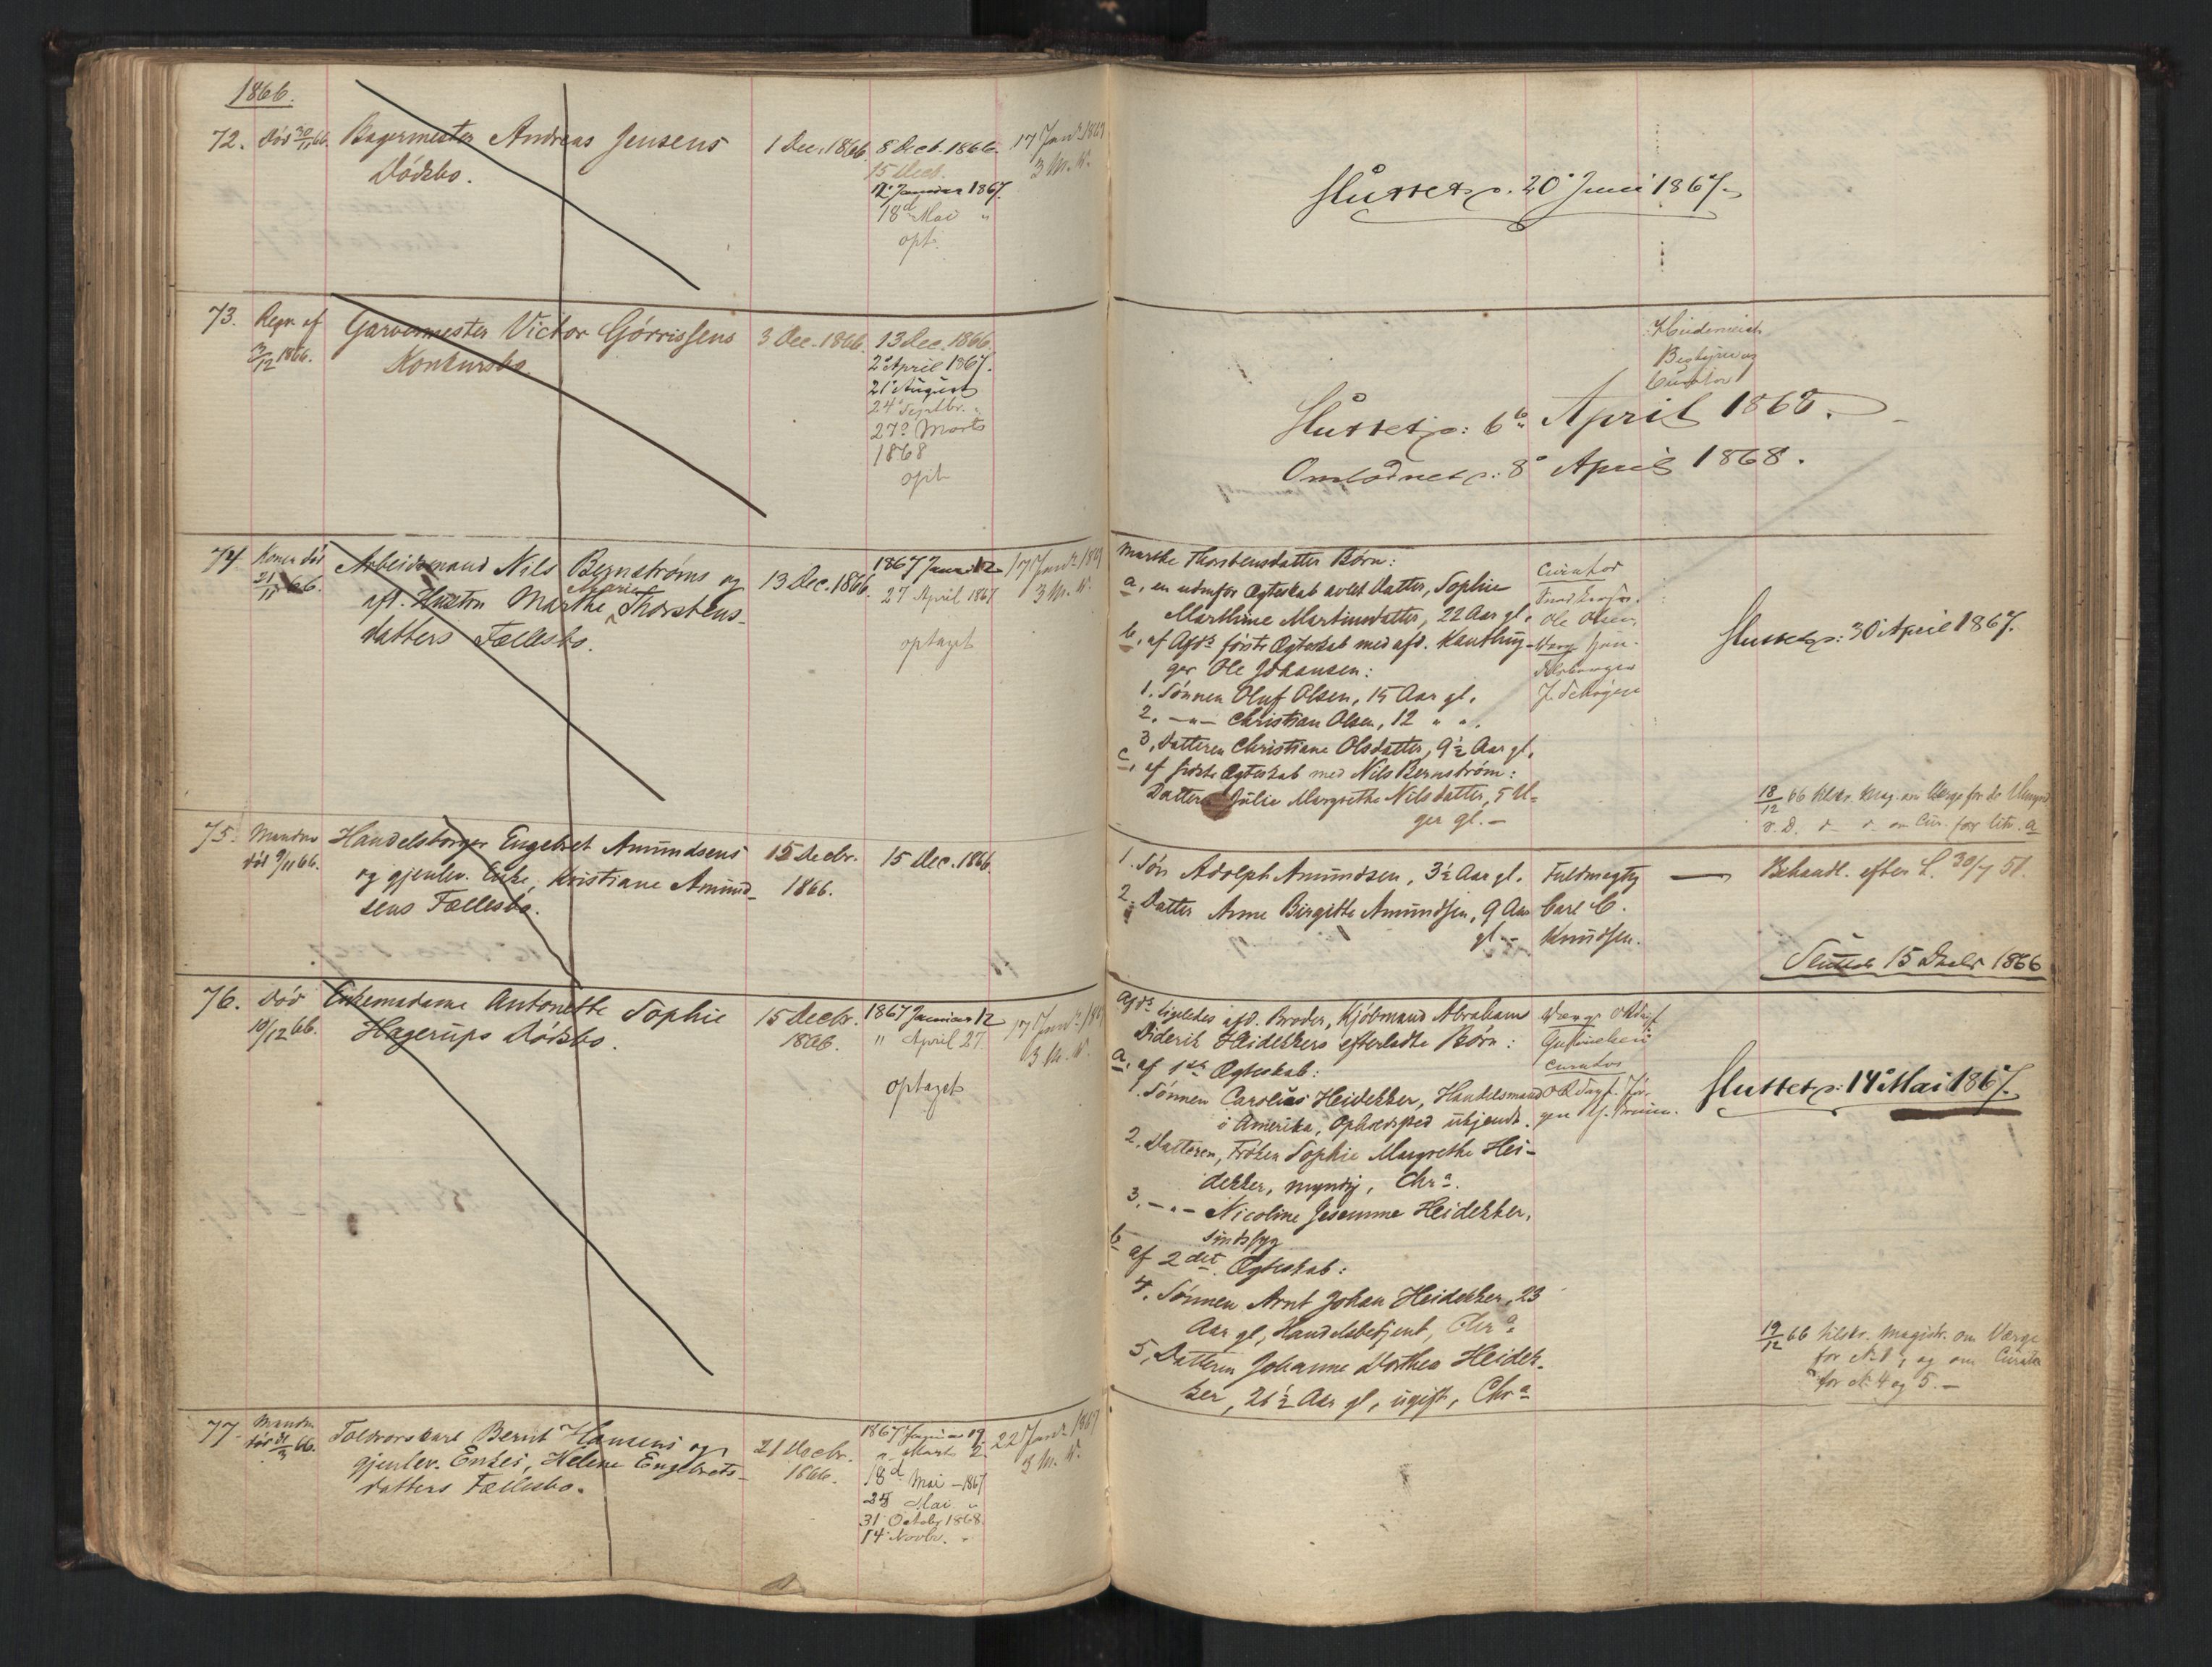 1866.
72. Død 30/11 66. Bagermester Andreas Jensens
Dødsbo.
1 Dec. 1866.
8 Decb. 1866.
15 Decb.
12 Januar 1867.
18d Mai "
opt.
17 Janr 1867
3 M. V.
Sluttet p. 20' Juni 1867.
73. Reqv. af
3/12 1866.
Garvermester Victor Gjørrissens
Konkursbo.
3 Dec. 1866.
13 Dec. 1866.
2 April 1867.
21 August
24 Septbr. "
27 Marts
1868
opt.
Curator
Sluttet p: 6 April 1868.
Omlodnet p: 8 April 1868.
74. Konen død
21/11 66.
Arbeidsmand Nils Bernstrøms og
afd. Hustru Marthe Marie Thorstens-
datters Fællesbo.
13 Dec. 1866.
1867 Januar 12
27 April 1867
optaget
17 Janr 1867
3 M. V.
Marthe Thorstensdatters Børn:
a, en udenfor Ægteskab avlet Datter, Sophie
Marthine Martinsdatter, 22 Aar gl.
b, af Afds første Ægteskab med afd. Kauthrin-
ger Ole Johansen:
1. Sønnen Oluf Olsen, 15 Aar gl.
2. -"- Christian Olsen, 12 " ".
3, Datteren Christiane Olsdatter, 9½ Aar gl.
c, af sidste Ægteskab med Nils Bernstrøm:
Datteren Julie Margrethe Nilsdatter, 5 U-
ger gl. -
Curator
Ole Olsen.
Sluttet p: 30 April 1867.
18/12 66 tilskr. Mag. om Værge for de Umynd.
75. Manden
død 9/11 66.
Handelsborger Engebret Amundsens
og gjenlev. Enke, Kristiane Amund-
sens Fællesbo.
15 Decbr.
1866.
15 Dec. 1866
1. Søn Adolph Amundsen, 3½ Aar gl.
2. Datter Anne Birgitte Amundsen, 9 Aar
gl. -
Fuldmægtig
Carl C.
Knudsen.
Behandl. efter L. 30/7 51.
Sluttet 15 Decbr 1866
76. Død
10/12 66.
Enkemadame Antonette Sophie
Hagerups Dødsbo.
15 Decbr.
1866.
1867 Januar 12
" April 27
optaget
17 Janr 1867
3 M. V.
Afds ligeledes afd. Broder, Kjøbmand Abraham
Diderik Heidekkers efterladte Børn:
a, af 1ste Ægteskab:
1. Sønnen Carolius Heidekker, Handelsmand
i Amerika, Opholdssted ubekjendt.
2. Datteren, Frøken Sophie Margrethe Hei-
dekker, myndig, Chra.
3. -"- Nicoline Jesemine Heidekker,
sindssyg
b af 2det Ægteskab:
4. Sønnen Arnt Johan Heidekker, 23
Aar gl, Handelsbetjent, Chra
5, Datteren Johanne Dorthea Heidek-
ker, 21½ Aar gl, ugift, Chra
Værge
Curator
Sluttet p: 14 Mai 1867.
19/12 66 tilskr. Magistr. om Værge
for No 1, og om Curator
for No 4 og 5. -
77. Manden
død
Toldrorskarl Bernt Hansens og
gjenlev. Enkes, Helene Engebrets-
datters Fællesbo.
21 Decbr.
1866.
1867 Januar 19
" Mart 2.
18d Mai - 1867
25 Mai "
31 Octobr 1868.
14 Novbr. "
22 Janr 1867
3 M. V.